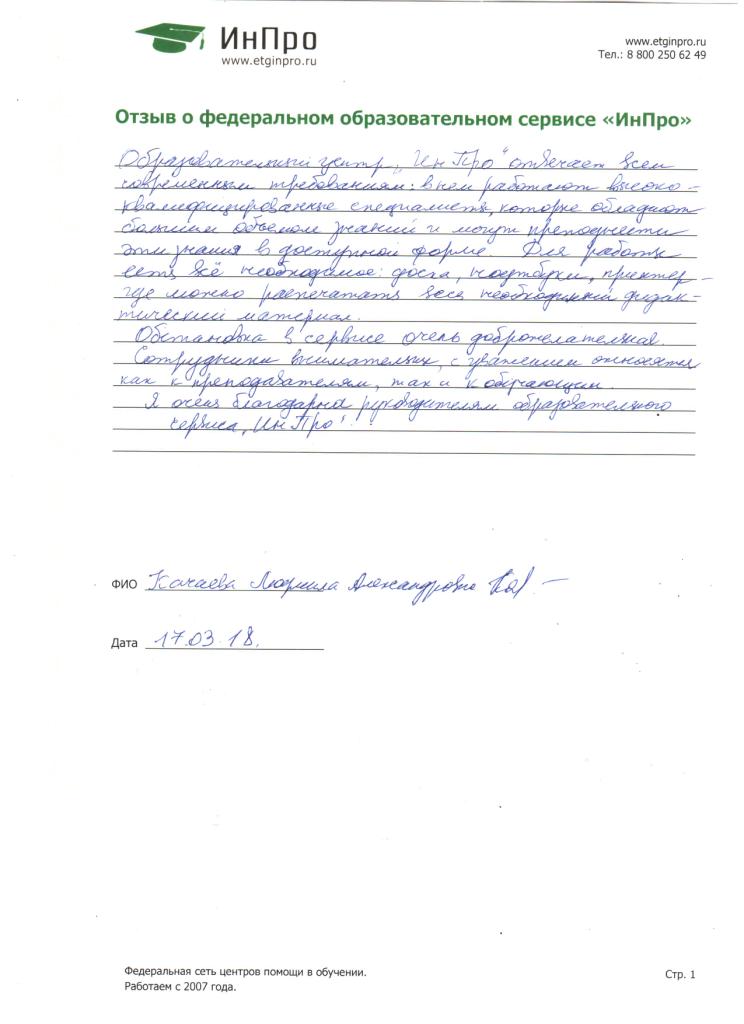 ИнПро
www.etginpro.ru
www.etginpro.ru
Тел.: 8 800 250 62 49
Отзыв о федеральном образовательном сервисе «ИнПро»
Образовательный центр „ИнПро" отвечает всем
современным требованиям: в нем работают высоко-
квалифицированные специалисты, которые обладают
большим объемом знаний и могут преподнести
эти знания в доступной форме. Для работы
есть всё необходимое: доска, ноутбуки, принтер -
где можно распечатать весь необходимый дидак-
тический материал.
Обстановка в сервисе очень доброжелательная.
Сотрудники внимательны, с уважением относятся
как к преподавателям, так и к обучающим.
Я очень благодарна руководителям образовательного
сервиса „ИнПро"!
ФИО Качаева Людмила Александровна
Дата 17.03.18.
Федеральная сеть центров помощи в обучении.
Работаем с 2007 года.
Стр. 1